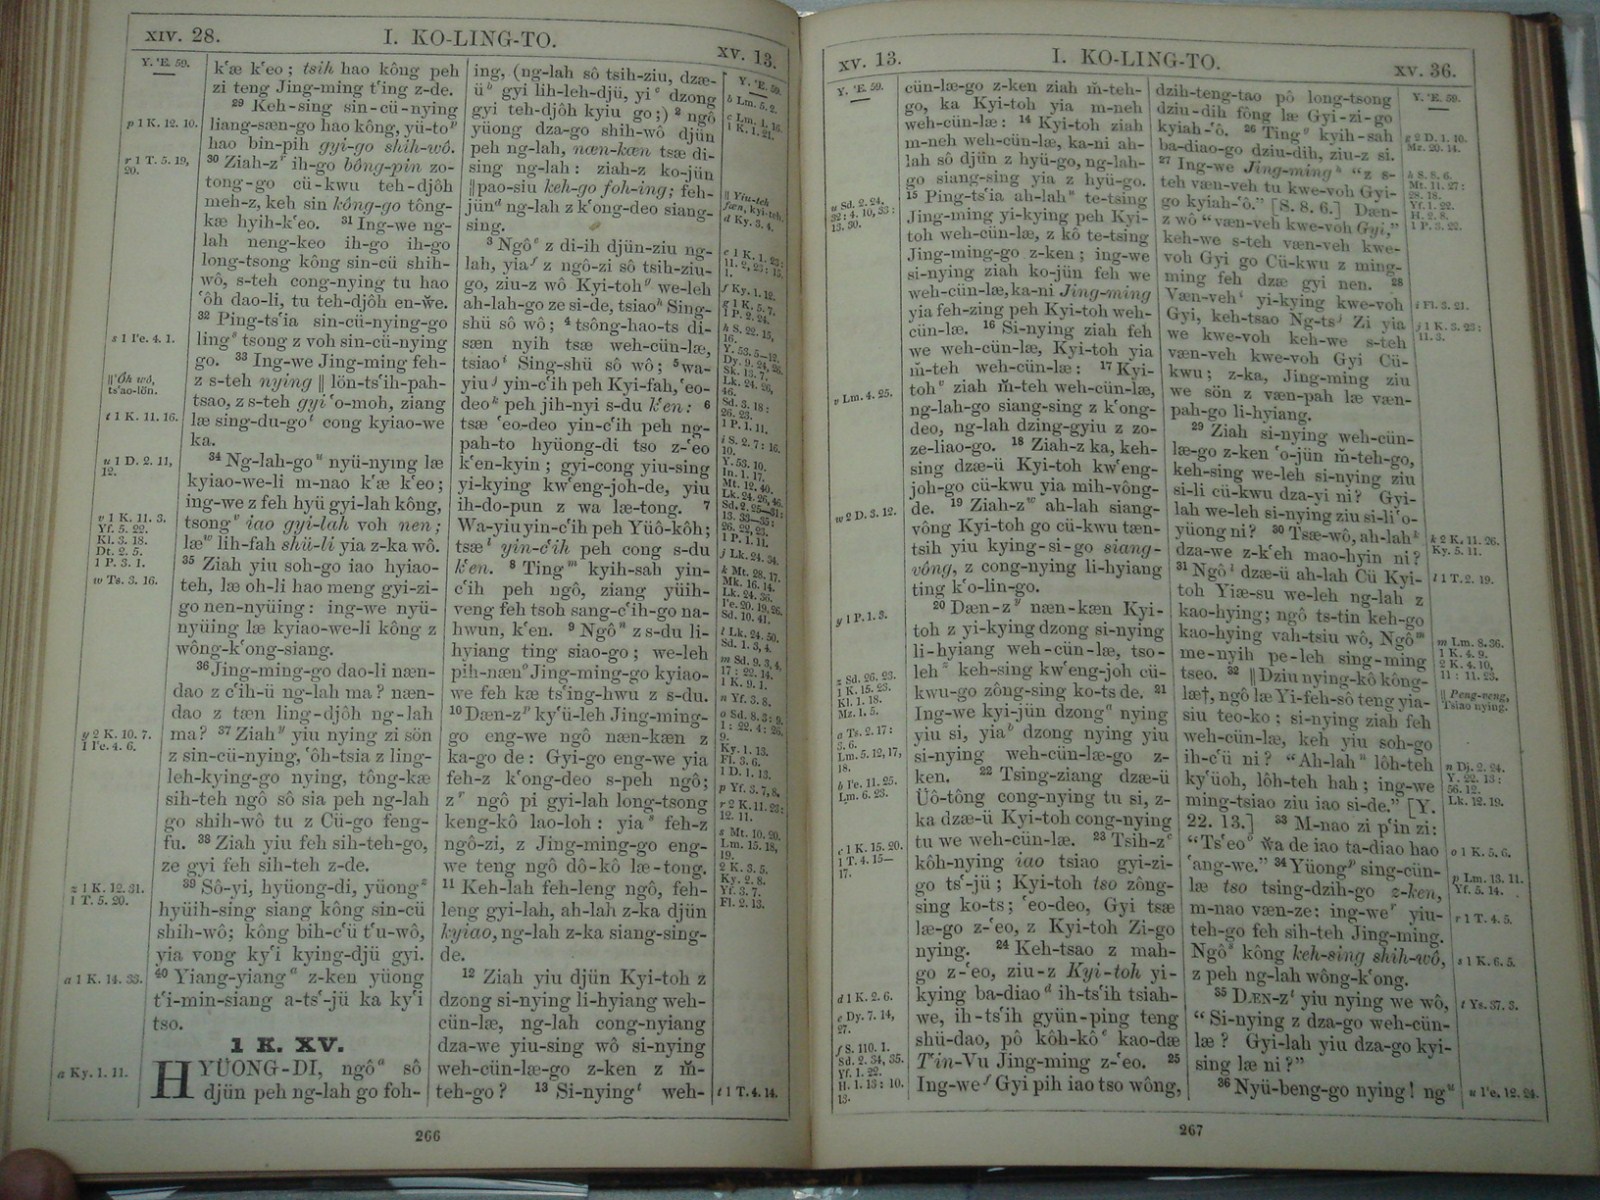 XIV. 28. I. KO-LING-TO. XV. 13.
Y. 'E. 59.
p 1 K. 12. 10.
r 1 T. 5. 19,
20.
s 1 Pe. 4. 1.
‖'Ôh wô,
ts'ao-lön.
t 1 K. 11. 16.
u 1 D. 2. 11,
12.
v 1 K. 11. 3.
Yf. 5. 22.
Kl. 3. 18.
Dt. 2. 5.
1 P. 3. 1.
w Ts. 3. 16.
y 2 K. 10. 7.
1 Pe. 4. 6.
z 1 K. 12. 31.
1 T. 5. 20.
a 1 K. 14. 33.
a Ky. 1. 11.
k'æ k'eo; tsih hao kông peh
zi teng Jing-ming t'ing z-de.
29 Keh-sing sin-cü-nying
liang-sæn-go hao kông, yü-to p
hao bin-pih gyi-go shih-wô.
30 Ziah-z r ih-go bông-pin zo-
tong-go cü-kwu teh-djôh
meh-z, keh sin kông-go tông-
kæ hyih-k'eo. 31 Ing-we ng-
lah neng-keo ih-go ih-go
long-tsong kông sin-cü shih-
wô, s-teh cong-nying tu hao
'ôh dao-li, tu teh-djôh en-w̆e.
32 Ping-ts'ia sin-cü-nying-go
ling s tsong z voh sin-cü-nying
go. 33 Ing-we Jing-ming feh-
z s-teh nying ‖ lön-ts'ih-pah-
tsao, z s-teh gyi 'o-moh, ziang
læ sing-du-go t cong kyiao-we
ka.
34 Ng-lah-go u nyü-nying læ
kyiao-we-li m-nao k'æ k'eo;
ing-we z feh hyü gyi-lah kông,
tsong v iao gyi-lah voh nen;
læ w lih-fah shü-li yia z-ka wô.
35 Ziah yiu soh-go iao hyiao-
teh, læ oh-li hao meng gyi-zi-
go nen-nyüing: ing-we nyü-
nyüing læ kyiao-we-li kông z
wông-k'ong-siang.
36 Jing-ming-go dao-li næn-
dao z c'ih-ü ng-lah ma? næn-
dao z tæn ling-djôh ng-lah
ma? 37 Ziah y yiu nying zi sön
z sin-cü-nying, 'ôh-tsia z ling-
leh-kying-go nying, tông-kæ
sih-teh ngô sô sia peh ng-lah
go shih-wô tu z Cü-go feng-
fu. 38 Ziah yiu feh sih-teh-go,
ze gyi feh sih-teh z-de.
39 Sô-yi, hyüong-di, yüong z
hyüih-sing siang kông sin-cü
shih-wô; kông bih-c'ü t'u-wô,
yia vong ky'i kying-djü gyi.
40 Yiang-yiang a z-ken yüong
t'i-min-siang a-ts'-jü ka ky'i
tso.
1 K. XV.
HYÜONG-DI, ngô a sô
djün peh ng-lah go foh-
ing, (ng-lah sô tsih-ziu, dzæ-
ü b gyi lih-leh-djü, yi c dzong
gyi teh-djôh kyiu go;) 2 ngô
yüong dza-go shih-wô djün
peh ng-lah, næn-kæn tsæ di-
sing ng-lah: ziah-z ko-jün
‖pao-siu keh-go foh-ing; feh-
jün d ng-lah z k'ong-deo siang-
sing.
3 Ngô e z di-ih djün-ziu ng-
lah, yia f z ngô-zi sô tsih-ziu-
go, ziu-z wô Kyi-toh g we-leh
ah-lah-go ze si-de, tsiao h Sing-
shü sô wô; 4 tsông-hao-ts di-
sæn nyih tsæ weh-cün-læ,
tsiao i Sing-shü sô wô; 5 wa-
yiu j yin-c'ih peh Kyi-fah, 'eo-
deo k peh jih-nyi s-du k'en: 6
tsæ 'eo-deo yin-c'ih peh ng-
pah-to hyüong-di tso z-'eo
k'en-kyin; gyi-cong yiu-sing
yi-kying kw'eng-joh-de, yiu
ih-do-pun z wa læ-tong. 7
Wa-yiu yin-c'ih peh Yüô-kôh;
tsæ l yin-c'ih peh cong s-du
k'en. 8 Ting m kyih-sah yin-
c'ih peh ngô, ziang yüih-
veng feh tsoh sang-c'ih-go na-
hwun, k'en. 9 Ngô n z s-du li-
hyiang ting siao-go; we-leh
pih-næn o Jing-ming-go kyiao-
we feh kæ ts'ing-hwu z s-du.
10 Dæn-z p ky'ü-leh Jing-ming-
go eng-we ngô næn-kæn z
ka-go de: Gyi-go eng-we yia
feh-z k'ong-deo s-peh ngô;
z r ngô pi gyi-lah long-tsong
keng-kô lao-loh: yia s feh-z
ngô-zi, z Jing-ming-go eng-
we teng ngô dô-kô læ-tong.
11 Keh-lah feh-leng ngô, feh-
leng gyi-lah, ah-lah z-ka djün
kyiao, ng-lah z-ka siang-sing-
de.
12 Ziah yiu djün Kyi-toh z
dzong si-nying li-hyiang weh-
cün-læ, ng-lah cong-nyiang
dza-we yiu-sing wô si-nying
weh-cün-læ-go z-ken z m̆-
teh-go? 13 Si-nying t weh-
Y. 'E. 59.
b Lm. 5. 2.
c Lm. 1. 16.
1 K. 1. 21.
‖ Yiu-teh
fæn, kyi-teh.
d Ky. 3. 4.
f Ky. 1. 12.
g 1 K. 5. 7.
1 P. 2. 24.
h S. 22. 15,
16.
Y. 53. 5—12.
Dy. 9. 24, 26.
Sk. 13. 7.
Lk. 24. 26,
46.
Sd. 3. 18:
26. 23.
1 P. 1. 11.
i S. 2. 7: 16.
10.
Y. 53. 10.
In. 1. 17.
Mt. 12. 40.
Lk. 24. 26, 46.
Sd. 2. 25—31:
13. 33—35:
26. 22, 23.
1 P. 1. 11.
j Lk. 24. 34.
k Mt. 28. 17.
Mk. 16. 14.
Lk. 24. 36.
Sd. 10. 41.
l Lk. 24. 50.
Sd. 1. 3, 4.
m Sd. 9. 3, 4,
17: 22. 14.
1 K. 9. 1.
n Yf. 3. 8.
o Sd. 8. 3: 9.
1: 22. 4: 26.
9.
Ky. 1. 13.
Fl. 3. 6.
1 D. 1. 13.
p Yf. 3. 7, 8.
r 2 K. 11. 23:
12. 11.
s Mt. 10. 20.
Lm. 15. 18,
19.
2 K. 3. 5.
Ky. 2. 8.
Yf. 3. 7.
Fl. 2. 13.
t 1 T. 4. 14.
266
XV. 13. I. KO-LING-TO. XV. 36.
Y. 'E. 59.
u Sd. 2. 24,
32: 4. 10, 33:
13. 30.
v Lm. 4. 25.
w 2 D. 3. 12.
y 1 P. 1. 3.
z Sd. 26. 23.
1 K. 15. 23.
Kl. 1. 18.
Mz. 1. 5.
a Ts. 2. 17:
3. 6.
Lm. 5. 12, 17,
18.
b Pe. 11. 25.
Lm. 6. 23.
c 1 K. 15. 20.
1 T. 4. 15—
17.
d 1 K. 2. 6.
e Dy. 7. 14,
27.
f S. 110. 1.
Sd. 2. 34, 35.
Yf. 1. 22.
H. 1. 13: 10.
13.
cün-læ-go z-ken ziah m̆-teh-
go, ka Kyi-toh yia m-neh
weh-cün-læ: 14 Kyi-toh ziah
m-neh weh-cün-læ, ka-ni ah-
lah sô djün z hyü-go, ng-lah-
go siang-sing yia z hyü-go.
15 Ping-ts'ia ah-lah u te-tsing
Jing-ming yi-kying peh Kyi-
toh weh-cün-læ, z kô te-tsing
Jing-ming-go z-ken; ing-we
si-nying ziah ko-jün feh we
weh-cün-læ, ka-ni Jing-ming
yia feh-zing peh Kyi-toh weh-
cün-læ. 16 Si-nying ziah feh
we weh-cün-læ, Kyi-toh yia
m̆-teh weh-cün-læ: 17 Kyi-
toh v ziah m̆-teh weh-cün-læ,
ng-lah-go siang-sing z k'ong-
deo, ng-lah dzing-gyiu z zo-
ze-liao-go. 18 Ziah-z ka, keh-
sing dzæ-ü Kyi-toh kw'eng-
joh-go cü-kwu yia mih-vông-
de. 19 Ziah-z w ah-lah siang-
vông Kyi-toh go cü-kwu tæn-
tsih yiu kying-si-go siang-
vông, z cong-nying li-hyiang
ting k'o-lin-go.
20 Dæn-z y næn-kæn Kyi-
toh z yi-kying dzong si-nying
li-hyiang weh-cün-læ, tso-
leh z keh-sing kw'eng-joh cü-
kwu-go zông-sing ko-ts de. 21
Ing-we kyi-jün dzong a nying
yiu si, yia b dzong nying yiu
si-nying weh-cün-læ-go z-
ken. 22 Tsing-ziang dzæ-ü
Üô-tông cong-nying tu si, z-
ka dzæ-ü Kyi-toh cong-nying
tu we weh-cün-læ. 23 Tsih-z c
kôh-nying iao tsiao gyi-zi-
go ts'-jü; Kyi-toh tso zông-
sing ko-ts; 'eo-deo, Gyi tsæ
læ-go z-'eo, z Kyi-toh Zi-go
nying. 24 Keh-tsao z mah-
go z-'eo, ziu-z Kyi-toh yi-
kying ba-diao d ih-ts'ih tsiah-
we, ih-ts'ih gyün-ping teng
shü-dao, pô kôh-kô e kao-dæ
T'in-Vu Jing-ming z-'eo. 25
Ing-we f Gyi pih iao tso wông,
dzih-teng-tao pô long-tsong
dziu-dih fông læ Gyi-zi-go
kyiah-'ô. 26 Ting g kyih-sah
ba-diao-go dziu-dih, ziu-z si.
27 Ing-we Jing-ming h “z s-
teh væn-veh tu kwe-voh Gyi-
go kyiah-'ô.” [S. 8. 6.] Dæn-
z wô “væn-veh kwe-voh Gyi,”
keh-we s-teh væn-veh kwe-
voh Gyi go Cü-kwu z ming-
ming feh dzæ gyi nen. 28
Væn-veh i yi-kying kwe-voh
Gyi, keh-tsao Ng-ts j Zi yia
we kwe-voh keh-we s-teh
væn-veh kwe-voh Gyi Cü-
kwu; z-ka, Jing-ming ziu
we sön z væn-pah læ væn-
pah-go li-hyiang.
29 Ziah si-nying weh-cün-
læ-go z-ken 'o-jün m̆-teh-go,
keh-sing we-leh si-nying ziu
si-li cü-kwu dza-yi ni? Gyi-
lah we-leh si-nying ziu si-li 'o-
yüong ni? 30 Tsæ-wô, ah-lah k
dza-we z-k'eh mao-hyin ni?
31 Ngô l dzæ-ü ah-lah Cü Kyi-
toh Yiæ-su we-leh ng-lah z
kao-hying; ngô ts-tin keh-go
kao-hying vah-tsiu wô, Ngô m
me-nyih pe-leh sing-ming
tseo. 32 ‖Dziu nying-kô kông-
læ†, ngô læ Yi-feh-sô teng yia-
siu teo-ko; si-nying ziah feh
weh-cün-læ, keh yiu soh-go
ih-c'ü ni? “Ah-lah n lôh-teh
ky'üoh, lôh-teh hah; ing-we
ming-tsiao ziu iao si-de.” [Y.
22. 13.] 33 M-nao zi p'in zi:
“Ts'eo o w̆a de iao ta-diao hao
'ang-we.” 34 Yüong p sing-cün-
læ tso tsing-dzih-go z-ken,
m-nao væn-ze: ing-we r yiu-
teh-go feh sih-teh Jing-ming.
Ngô s kông keh-sing shih-wô,
z peh ng-lah wông-k'ong.
35 DÆN-Z t yiu nying we wô,
“Si-nying z dza-go weh-cün-
læ? Gyi-lah yiu dza-go kyi-
sing læ ni?”
36 Nyü-beng-go nying! ng u
Y. 'E. 59.
g 2 D. 1. 10.
Mz. 20. 14.
h S. 8. 6.
Mt. 11. 27:
28. 18.
Yf. 1. 22.
H. 2. 8.
1 P. 3. 22.
i Fl. 3. 21.
j 1 K. 3. 23:
11. 3.
k 2 K. 11. 26.
Ky. 5. 11.
l 1 T. 2. 19.
m Lm. 8. 36.
1 K. 4. 9.
2 K. 4. 10,
11: 11. 23.
‖ Peng-veng,
Tsiao nying.
n Dj. 2. 24.
Y. 22. 13:
56. 12.
Lk. 12. 19.
o 1 K. 5. 6.
p Lm. 13. 11.
Yf. 5. 14.
r 1 T. 4. 5.
s 1 K. 6. 5.
t Ys. 37. 3.
u Pe. 12. 24.
267